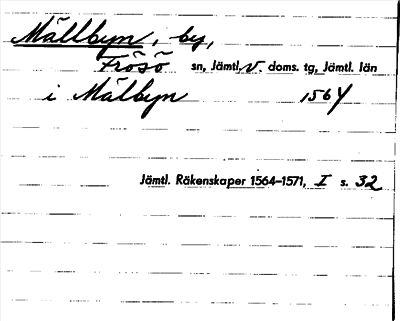 Mällbyn, by,
Frösö sn, Jämtl. v. doms. tg, Jämtl. län
i Mälbyn 1564
Jämtl. Räkenskaper 1564–1571, I s. 32